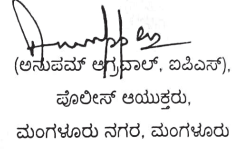 (ಅನುಪಮ್ ಅಗ್ರವಾಲ್, ಐಪಿಎಸ್),
ಪೊಲೀಸ್ ಆಯುಕ್ತರು,
ಮಂಗಳೂರು ನಗರ, ಮಂಗಳೂರು